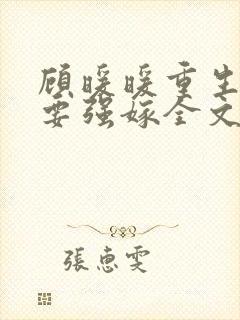 顾暖暖重生
要强嫁全文
张惠雯